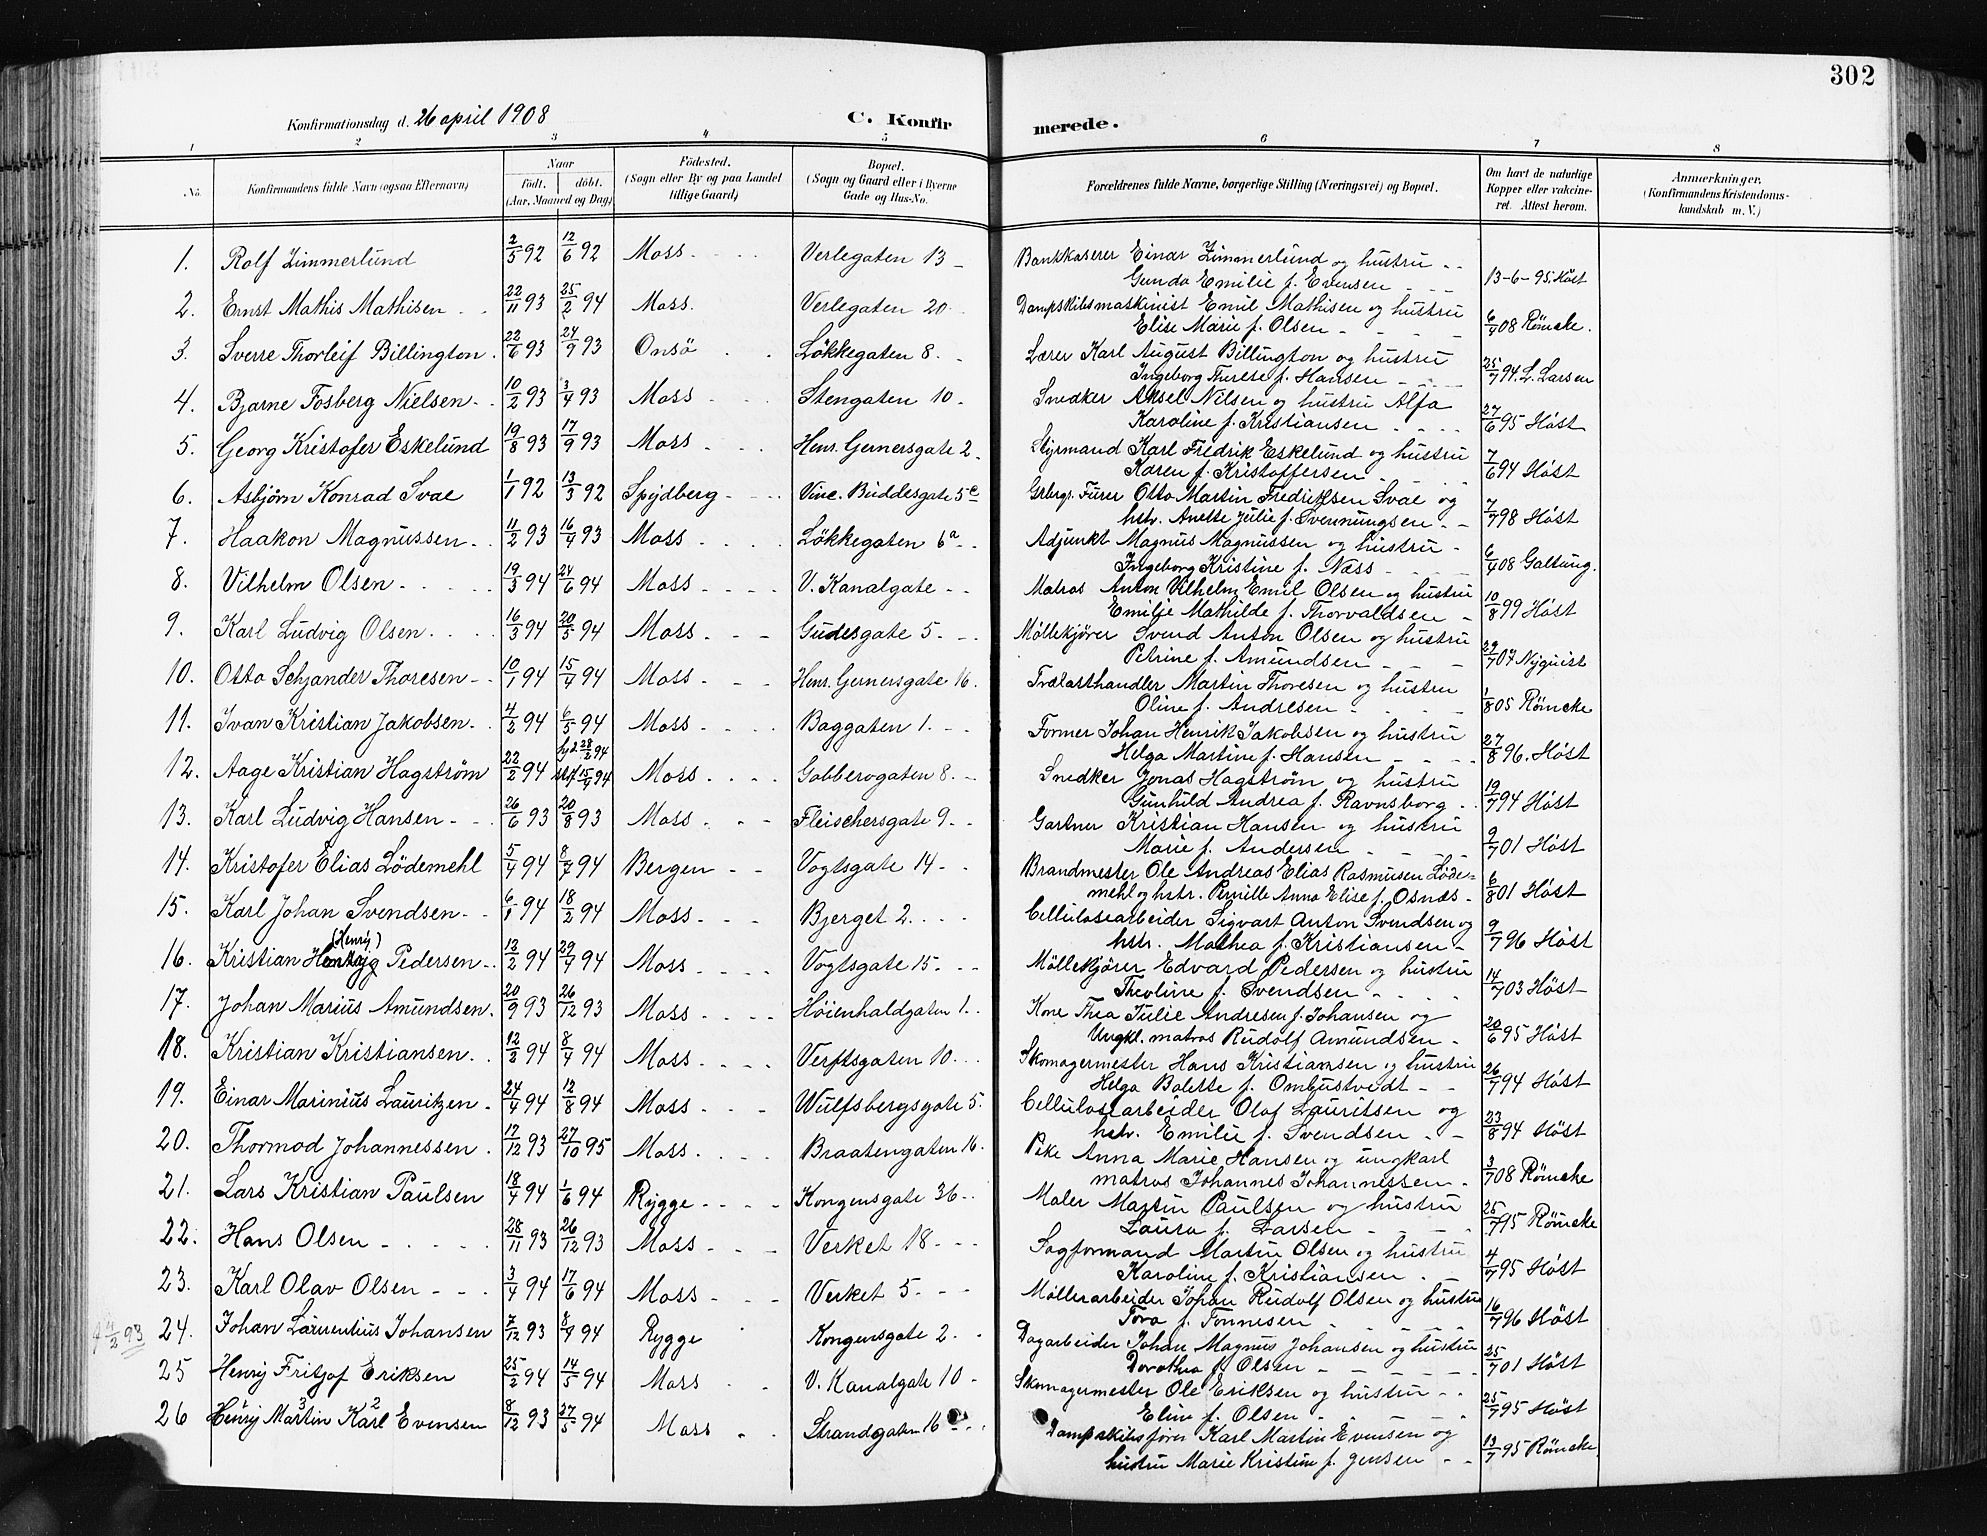 302
Konfirmationsdag d. 26 april 1908
C. Konfirmerede.
1 2 3 4 5 6 7 8
No.
Konfirmandens fulde Navn (ogsaa Efternavn)
Naar
født. døbt.
(Aar, Maaned og Dag)
Fødested.
(Sogn eller By og paa Landet
tillige Gaard)
Bopæl.
(Sogn og Gaard eller i Byerne
Gade og Hus-No.
Forældrenes fulde Navne, borgerlige Stilling (Næringsvei) og Bopæl.
Om havt de naturlige
Kopper eller vakcine-
ret. Attest herom.
Anmerkninger.
(Konfirmandens Kristendoms-
kundskab m. V.)
1. Rolf Zimmerlund 2/5 92 12/6 92 Moss Verlegaten 13 Bankkaserer Einar Zimmerlund og hustru
Gunda Emilie f. Evensen 13-6-95 Høst
2. Ernst Mathis Mathisen 22/11 93 25/2 94 Moss. Verlegaten 20 Dampskibsmaskinist Emil Mathisen og hustru
Elise Marie f. Olsen 6/4 08 Rømcke.
3. Sverre Thorleif Billington 22/6 93 24/9 93 Onsö Løkkegaten 8 Lærer Karl August Billington og hustru
Ingeborg Therese f. Hansen 25/7 94. L. Larsen
4. Bjarne Fosberg Nielsen 10/2 93 3/4 93 Moss Stengaten 10 Snedker Aksel Nilsen og hustru Alfa
Karoline f. Kristiansen 27/6 95 Høst
5. Georg Kristofer Eskelund 19/8 93 17/9 93 Moss Henr. Gernersgate 2 Styrmand Karl Fredrik Eskelund og hustru
Karen f. Kristoffersen 7/6 94 Høst
6. Asbjørn Konrad Svae 1/1 92 13/3 92 Spydberg Vinc. Buddesgate 5c Otto Martin Fredriksen Svae og
hstr. Anette Julie f. Svennungsen 7/7 98 Høst
7. Haakon Magnussen 11/2 93 16/4 93 Moss Løkkegaten 6a Adjunkt Magnus Magnussen og hustru
Ingeborg Kristine f. Næss 6/4 08 Galtung.
8. Vilhelm Olsen 19/3 94 24/6 94 Moss V. Kanalgate Matros Anton Vilhelm Emil Olsen og hustru
Emilje Mathilde f. Thorvaldsen 10/8 99 Høst
9. Karl Ludvig Olsen 16/3 94 20/5 94 Moss Gudesgate 5 Møllekjører Svend Anton Olsen og hustru
Petrine f. Amundsen 29/7 07 Nyquist
10. Otto Schjander Thoresen 10/1 94 15/4 94 Moss Henr. Gernersgate 16 Trælasthandler Martin Thoresen og hustru
Oline f. Andresen 1/8 05 Rømcke
11. Ivan Kristian Jakobsen 4/2 94 6/5 94 Moss Baggaten 1. Former Johan Henrik Jakobsen og hustru
Helga Martine f. Hansen 27/8 96. Høst
12. Aage Kristian Hagstrøm 22/2 94 hjd 28/2 94 stf 15/4 94 Moss Gabberogaten 8. Snedker Jonas Hagstrøm og hustru
Gunhild Andrea f. Ravnsborg 19/7 94 Høst
13. Karl Ludvig Hansen 26/6 93 20/8 93 Moss Fleischersgate 9 Gartner Kristian Hansen og hustru
Marie f. Andersen 9/7 01 Høst
14. Kristofer Elias Lødemehl 5/4 94 8/7 94 Bergen Vogtsgate 14 Brandmester Ole Andreas Elias Rasmusen Løde-
mehl og hstr. Pernille Anna Elise f. Osnæs 6/8 01 Høst
15. Karl Johan Svendsen 6/1 94 18/2 94 Moss Bjerget 2. Cellulosearbeider Sigvart Anton Svendsen og
hstr. Mathea f. Kristiansen 9/7 96 Høst
16. Kristian (Henry) Pedersen 12/2 94 29/4 94 Moss Vogtsgate 15 Møllekjører Edvard Pedersen og hustru
Theoline f. Svendsen 14/7 03 Høst
17. Johan Marius Amundsen 20/9 93 26/12 93 Moss Høienhaldgaten 1. Kone Thea Julie Andresen f. Johansen og
Ungkl. matros Rudolf Amundsen 20/6 95 Høst
18. Kristian Kristiansen 12/2 94 8/4 94 Moss Verftsgaten 10 Skomagermester Hans Kristiansen og hustru
Helga Bolette f. Ombustvedt 26/7 94 Høst
19. Einar Marinius Lauritzen 24/4 94 12/8 94 Moss Wulfsbergsgate 5. Cellulosearbeider Olaf Lauritsen og
hstr. Emilie f. Svendsen 23/8 94 Høst
20. Thormod Johannessen 17/12 93 27/10 95 Moss Braatengaten 16 Pike Anna Marie Hansen og ungkarl
matros Johannes Johannessen 3/7 08 Rømcke
21. Lars Kristian Paulsen 18/4 94 1/6 94 Rygge Kongensgate 36 Maler Martin Paulsen og hustru
Laura f. Larsen 25/7 95 Rømcke
22. Hans Olsen 28/11 93 26/12 93 Moss Verket 18 Sagformand Martin Olsen og hustru
Karoline f. Kristiansen 4/7 95 Høst
23. Karl Olav Olsen 3/4 94 17/6 94 Moss Verket 5 Møllerarbeider Johan Rudolf Olsen og hustru
Tora f. Tonnesen 16/7 96 Høst
4/2 93 24. Johan Laurentius Johansen 7/12 93 8/4 94 Rygge Kongensgate 2 Dagarbeider Johan Magnus Johansen og hustru
Dorothea f. Olsen 25/7 01 Høst
25 Henry Fritjof Eriksen 25/2 94 14/5 94 Moss V. Kanalgate 10 Skomagermester Ole Eriksen og hustru
Eline f. Olsen 25/7 95 Høst
26 Henry Martin Karl Evensen 1 3 2 8/12 93 27/5 94 Moss Strandgaten 16 Dampskibsfører Karl Martin Evensen og
hustru Marie Kristine f. Jensen 13/7 95 Rømcke